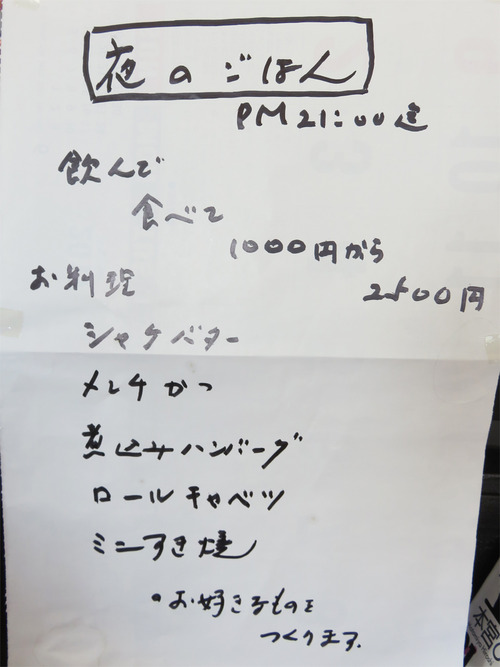 夜のごはん
PM21:00迄
飲んで
食べて
1000円から
2500円
お料理
シャケバター
メンチかつ
煮込みハンバーグ
ロールキャベツ
ミニすき焼
・お好きなものを
つくります.